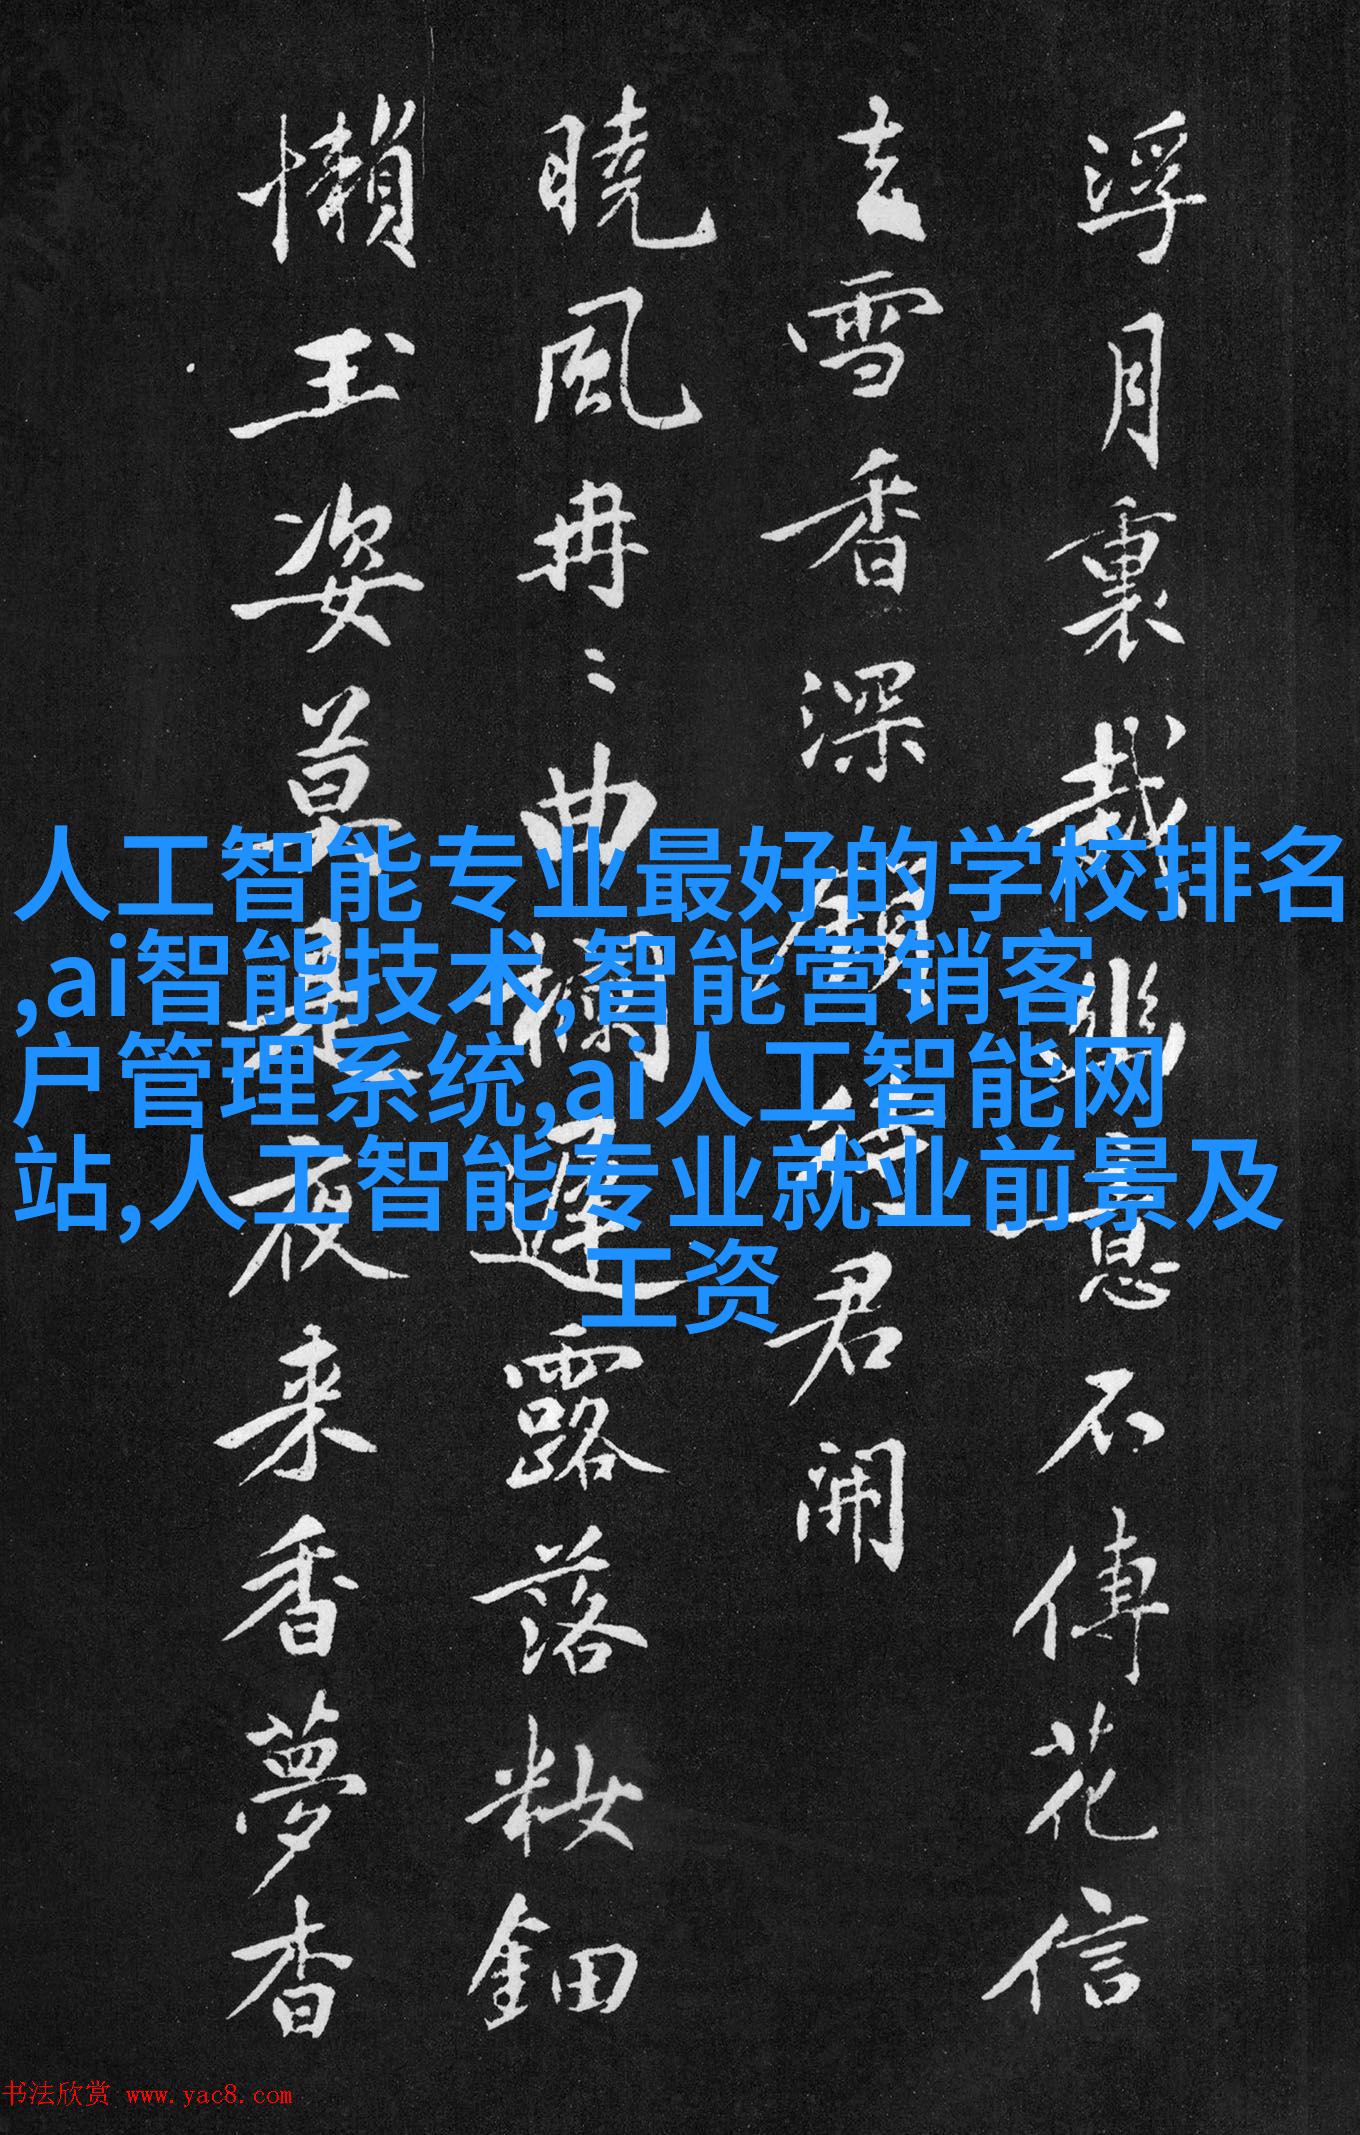 浮月裏裁幽意不傳花信
去雪香深顧待君開
曉風冉〻曲欄遲露落粧鈿
懶玉姿莫是夜来香夢杳
人工智能专业最好的学校排名
,ai智能技术,智能营销客
户管理系统,ai人工智能网
站,人工智能专业就业前景及
工资
书法欣赏 www.yac8.com